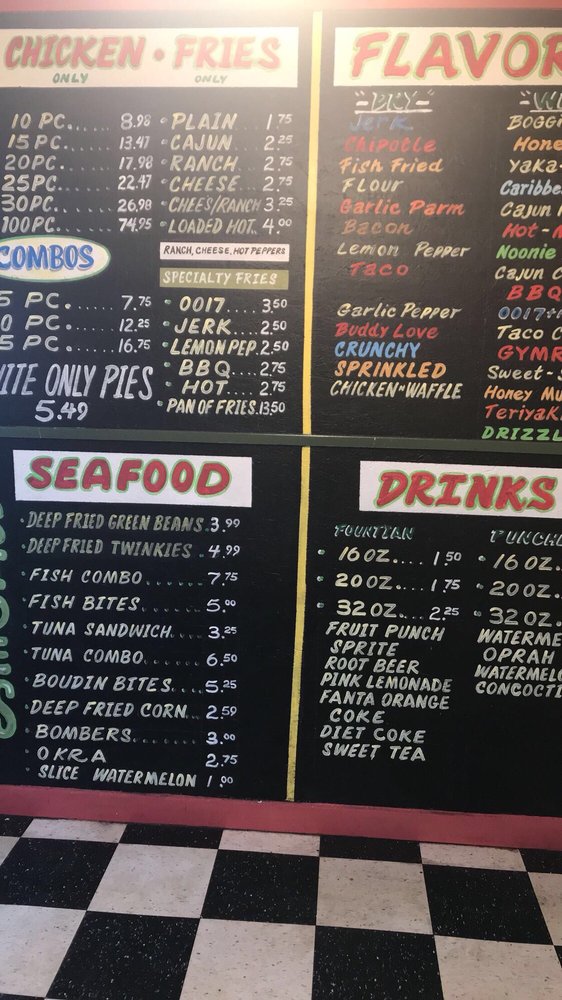 CHICKEN • FRIES
ONLY ONLY
10 PC...... 8.98
15 PC..... 13.47
20 PC..... 17.98
25 PC..... 22.47
30 PC..... 26.98
100 PC.... 74.95
• PLAIN... 1.75
• CAJUN... 2.25
• RANCH... 2.75
• CHEESE... 2.75
• CHEES/RANCH 3.25
• LOADED HOT.. 4.00
RANCH, CHEESE, HOT PEPPERS
COMBOS
5 PC..... 7.75
0 PC.... 12.25
5 PC.... 16.75
ITE ONLY PIES
5.49
SPECIALTY FRIES
• 0017.... 3.50
• JERK.... 2.50
• LEMON PEP. 2.50
• BBQ.... 2.75
• HOT.... 2.75
• PAN OF FRIES. 13.50
FLAVOR
DRY
Jerk
Chipotle
Fish Fried
FLOUR
Garlic Parm
Bacon
Lemon Pepper
Taco
Garlic Pepper
Buddy Love
CRUNCHY
SPRINKLED
CHICKEN-N-WAFFLE
W
BOGGI
Hone
YaKa-
Caribbe
Cajun
Hot-M
Noonie
Cajun C
BBQ
0017+
Taco C
GYMR
Sweet-S
Honey Mu
TeriyaK
DRIZZL
SEAFOOD
• DEEP FRIED GREEN BEANS. 3.99
• DEEP FRIED TWINKIES.. 4.99
• FISH COMBO........ 7.75
• FISH BITES....... 5.00
• TUNA SANDWICH.... 3.25
• TUNA COMBO...... 6.50
• BOUDIN BITES.... 5.25
• DEEP FRIED CORN... 2.59
• BOMBERS....... 3.00
• OKRA 2.75
• SLICE WATERMELON 1.00
DRINKS
FOUNTIAN
• 16 OZ.... 1.50
• 20 OZ.... 1.75
• 32 OZ.... 2.25
FRUIT PUNCH
SPRITE
ROOT BEER
PINK LEMONADE
FANTA ORANGE
COKE
DIET COKE
SWEET TEA
PUNCH
• 16 OZ.
• 20 OZ.
• 32 OZ.
WATERME
OPRAH
WATERMELO
CONCOCTI